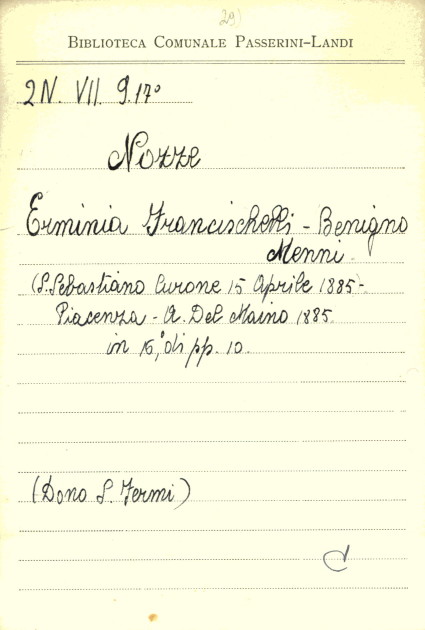 29)
BIBLIOTECA COMUNALE PASSERINI-LANDI
2N. VII. 9.17°
Nozze
Erminia Francischelli - Benigno
Menni.
(S. Sebastiano Curone 15 Aprile 1885-
Piacenza - A. Del Maino 1885.
in 16°, di pp. 10.
(Dono S. Fermi)
C